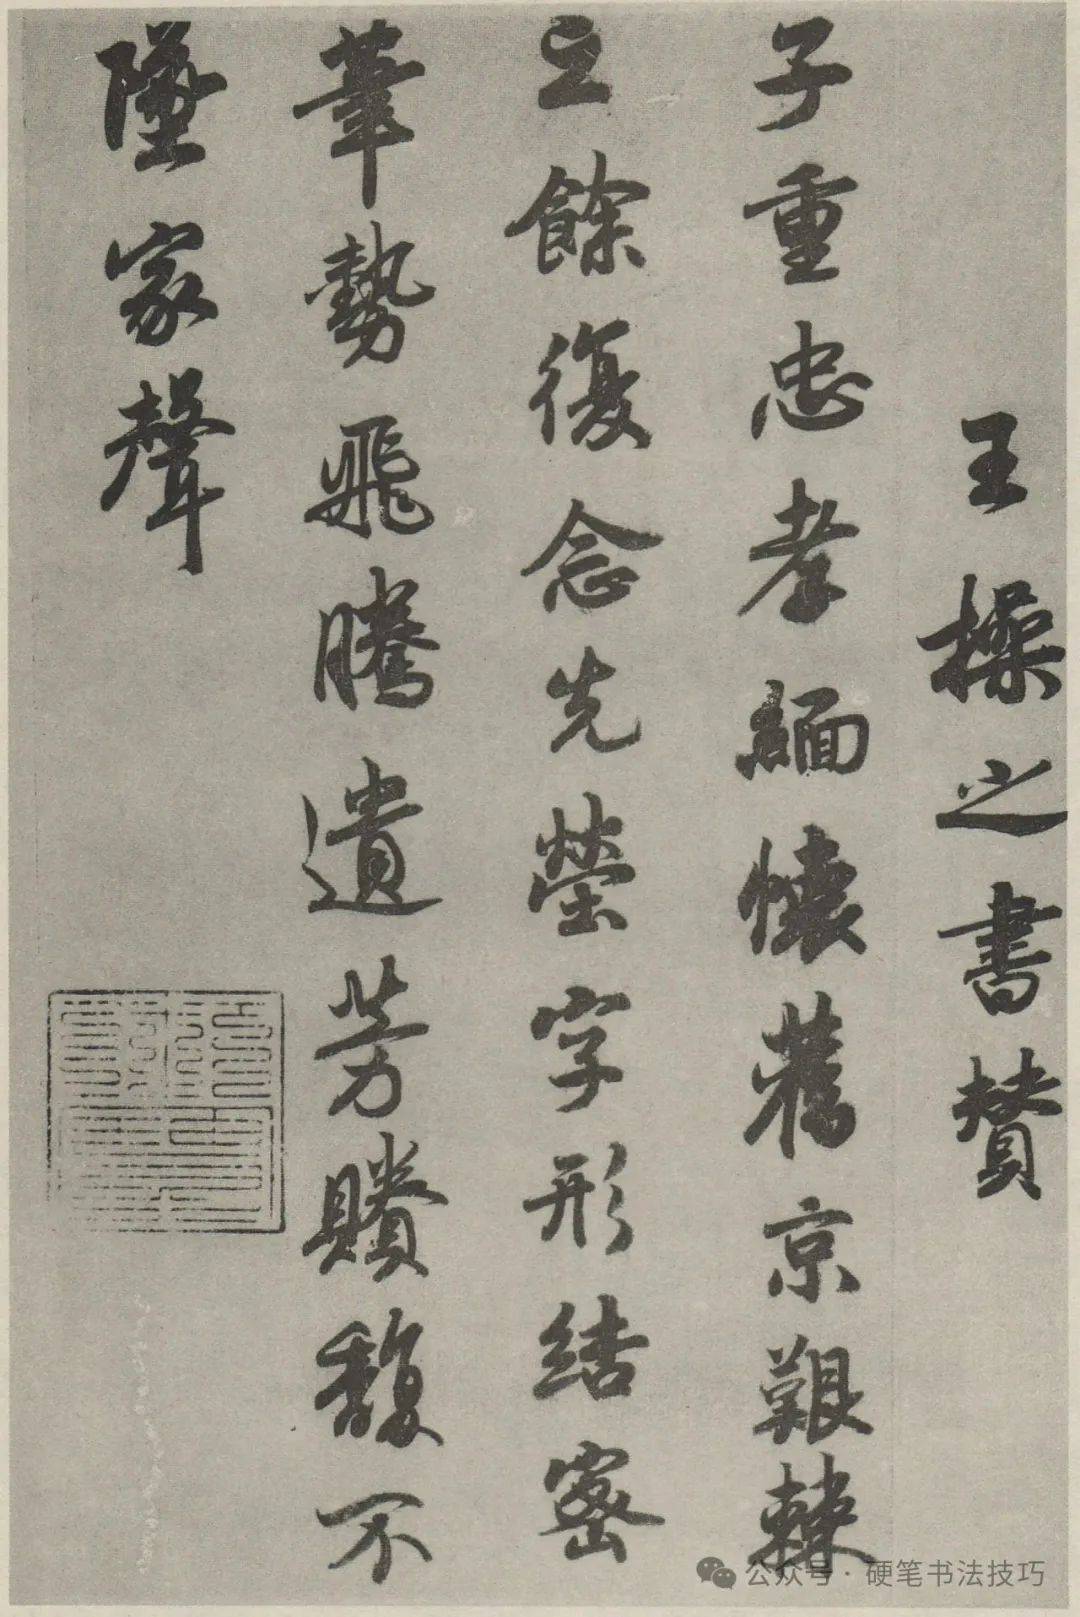 王操之書贊
子重忠孝緬懷舊京艱棘
之餘復念先塋字形結密
筆勢飛騰遺芳賸馥不
墜家聲
公众号·硬笔书法技巧